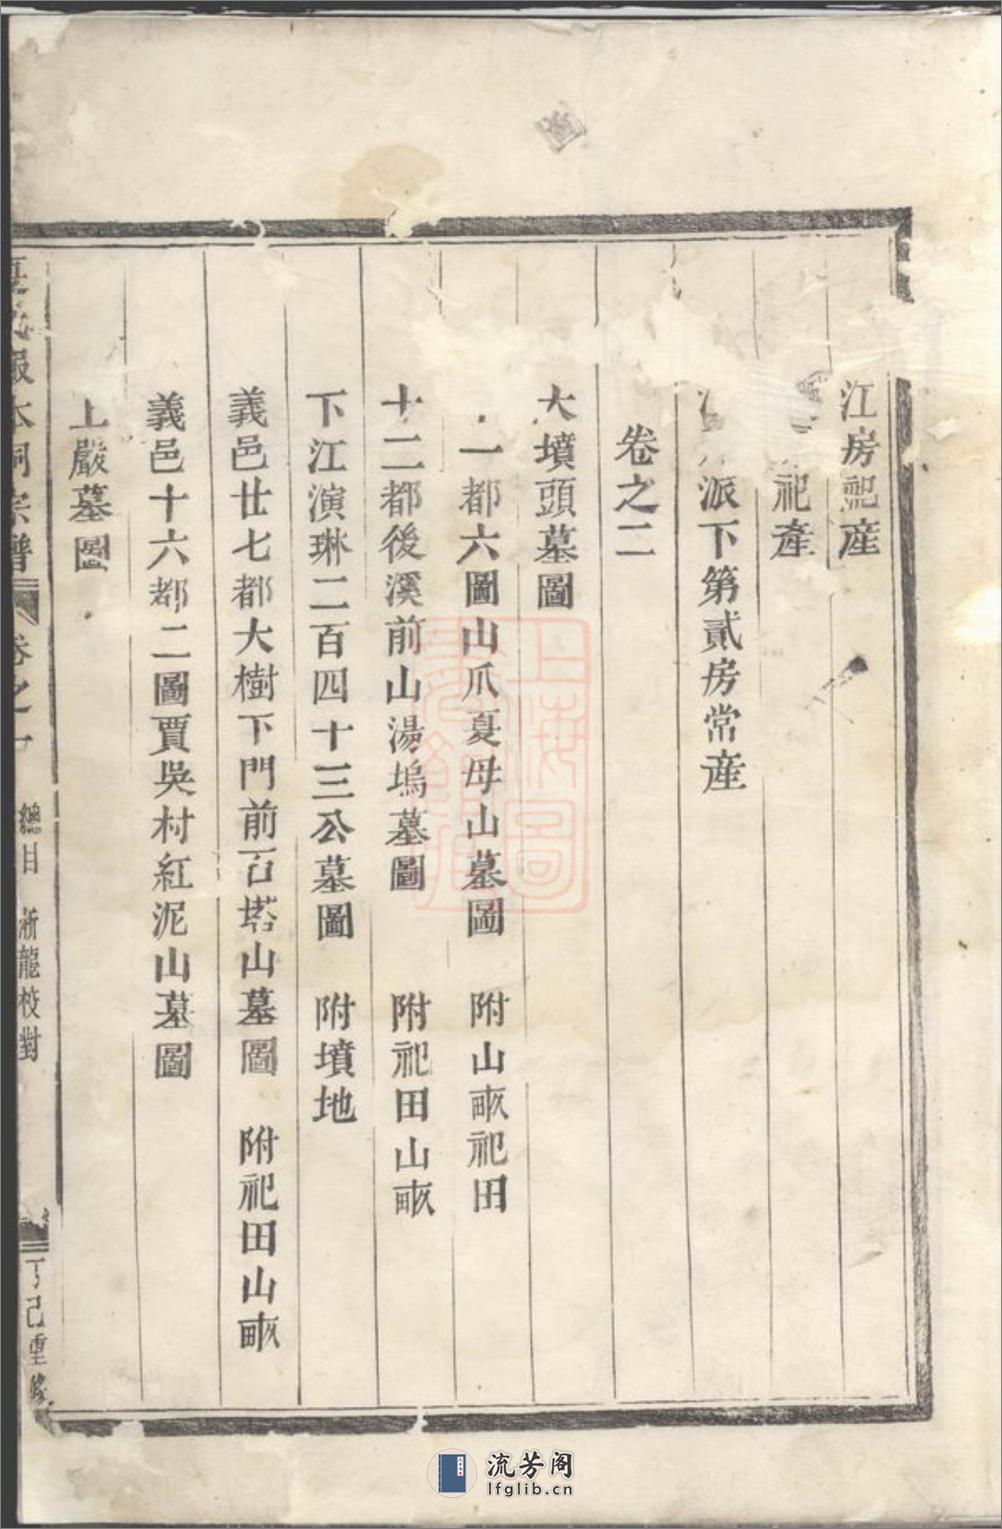 江房祀産
祀産
派下第貳房常産
卷之二
大墳頭墓圖
一都六圖山爪夏母山墓圖　附山畝祀田
十二都後溪前山湯塢墓圖　附祀田山畝
下江演琳二百四十三公墓圖　附墳地
義邑廿七都大樹下門前石塔山墓圖　附祀田山畝
義邑十六都二圖賈吳村紅泥山墓圖
上嚴墓圖
氏報本祠宗譜　卷之一　總目　浙龍校對　丁己重修
上海圖書館藏
流芳阁
lfglib.cn